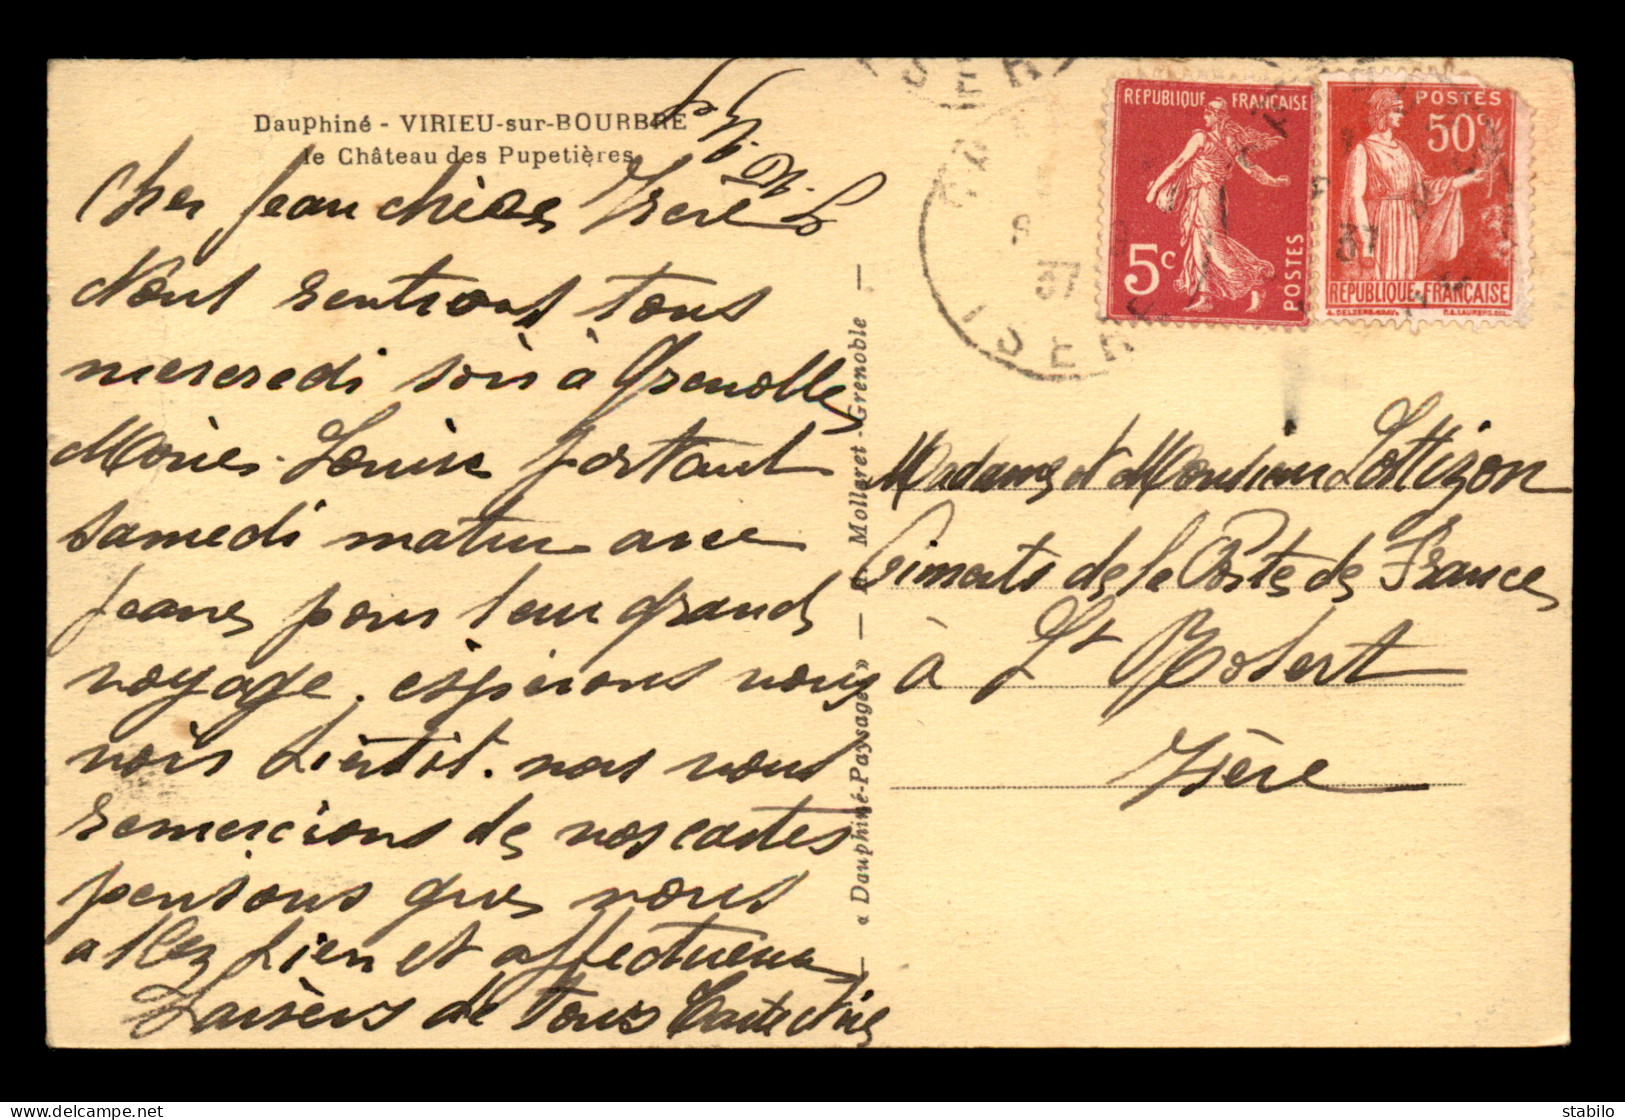 Dauphiné - VIRIEU-sur-BOURBRE
le Château des Pupetières
Cher Jean chère Irène
Nous rentrons tous
mercredi soir à Grenoble
Marie-Louise partant
samedi matin avec
Jeanne pour leur grand
voyage. espérons vous
voir bientôt. nous vous
remercions de vos cartes
pensons que vous
allez bien et affectueux
baisers de tous Tante
« Dauphiné-Paysage » — Mollaret - Grenoble —
REPUBLIQUE FRANÇAISE
5c
POSTES
POSTES
50c
REPUBLIQUE FRANÇAISE
37
ISERE
37
Madame et Monsieur Lottizon
Ciments de la Porte de France
à St Robert
Isère
stabilo